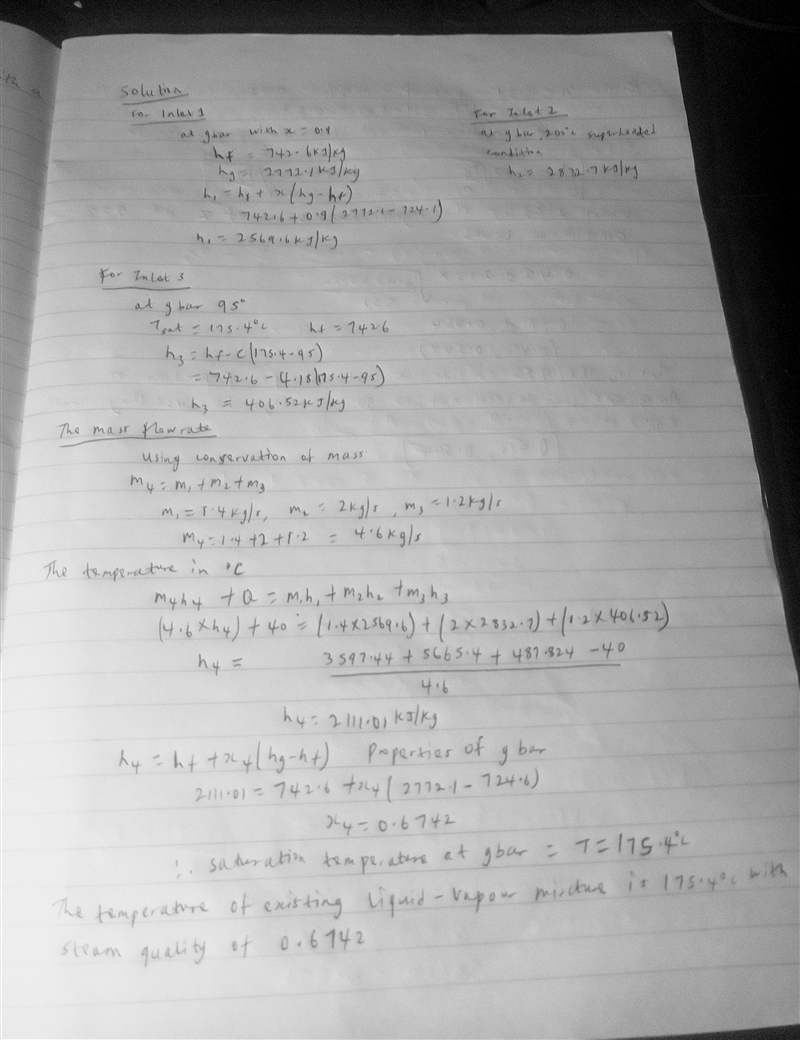 Solution
For Inlet 1
at 9bar with x = 0.9
hf = 742.6KJ/kg
hg = 2772.1KJ/kg
h1 = hf + x(hg-hf)
742.6 + 0.9(2772.1 - 724.1)
h1 = 2569.6KJ/kg
For Inlet 2
at 9 bar 200°c superheated
condition
h2 = 2832.7KJ/kg
For Inlet 3
at 9bar 95°
Tsat = 175.4°c hf = 742.6
h3 = hf - C(175.4-95)
= 742.6 - 4.18(175.4-95)
h3 = 406.52KJ/kg
The mass flowrate
Using conservation of mass
m4 = m1 + m2 + m3
m1 = 1.4kg/s, m2 = 2kg/s, m3 = 1.2kg/s
m4 = 1.4 + 2 + 1.2 = 4.6kg/s
The temperature in °C
m4h4 + Q = m1h1 + m2h2 + m3h3
(4.6 x h4) + 40 = (1.4 x 2569.6) + (2 x 2832.7) + (1.2 x 406.52)
h4 = 3597.44 + 5665.4 + 487.824 - 40
4.6
h4 = 2111.01 KJ/kg
h4 = hf + x4(hg-hf) Properties of 9 bar
2111.01 = 742.6 + x4(2772.1 - 724.6)
x4 = 0.6742
∴ Saturation temperature at 9bar = T = 175.4°c
The temperature of existing liquid-vapour mixture is 175.4°c with
steam quality of 0.6742